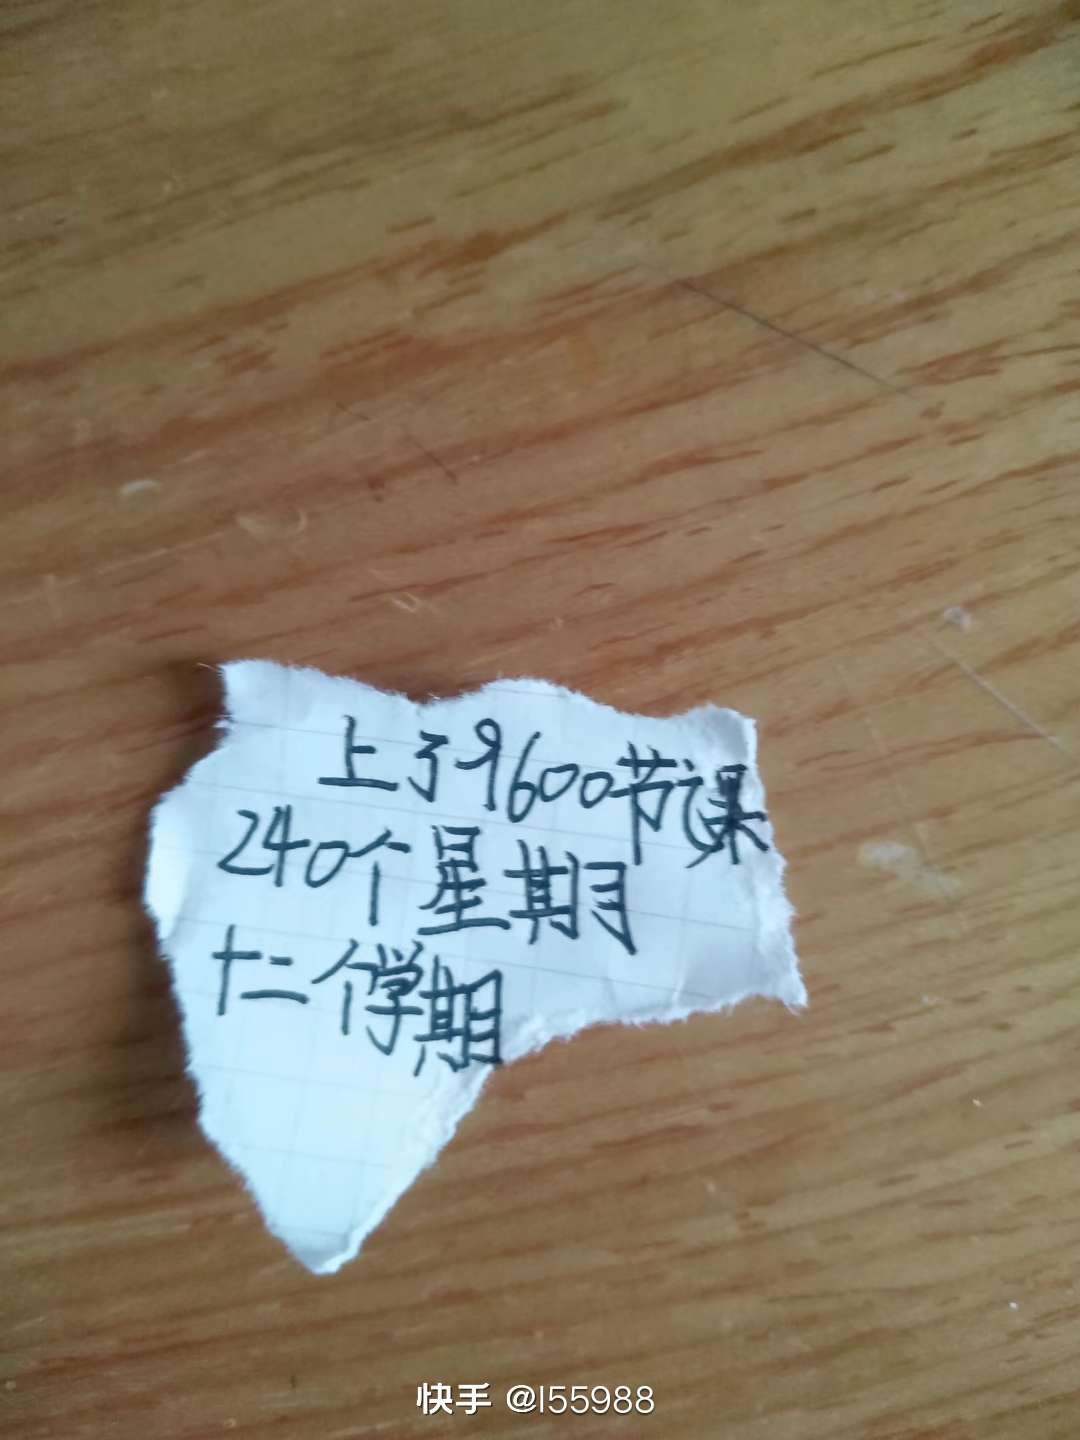 上了9600节课
240个星期
十二个学期
快手 @l55988